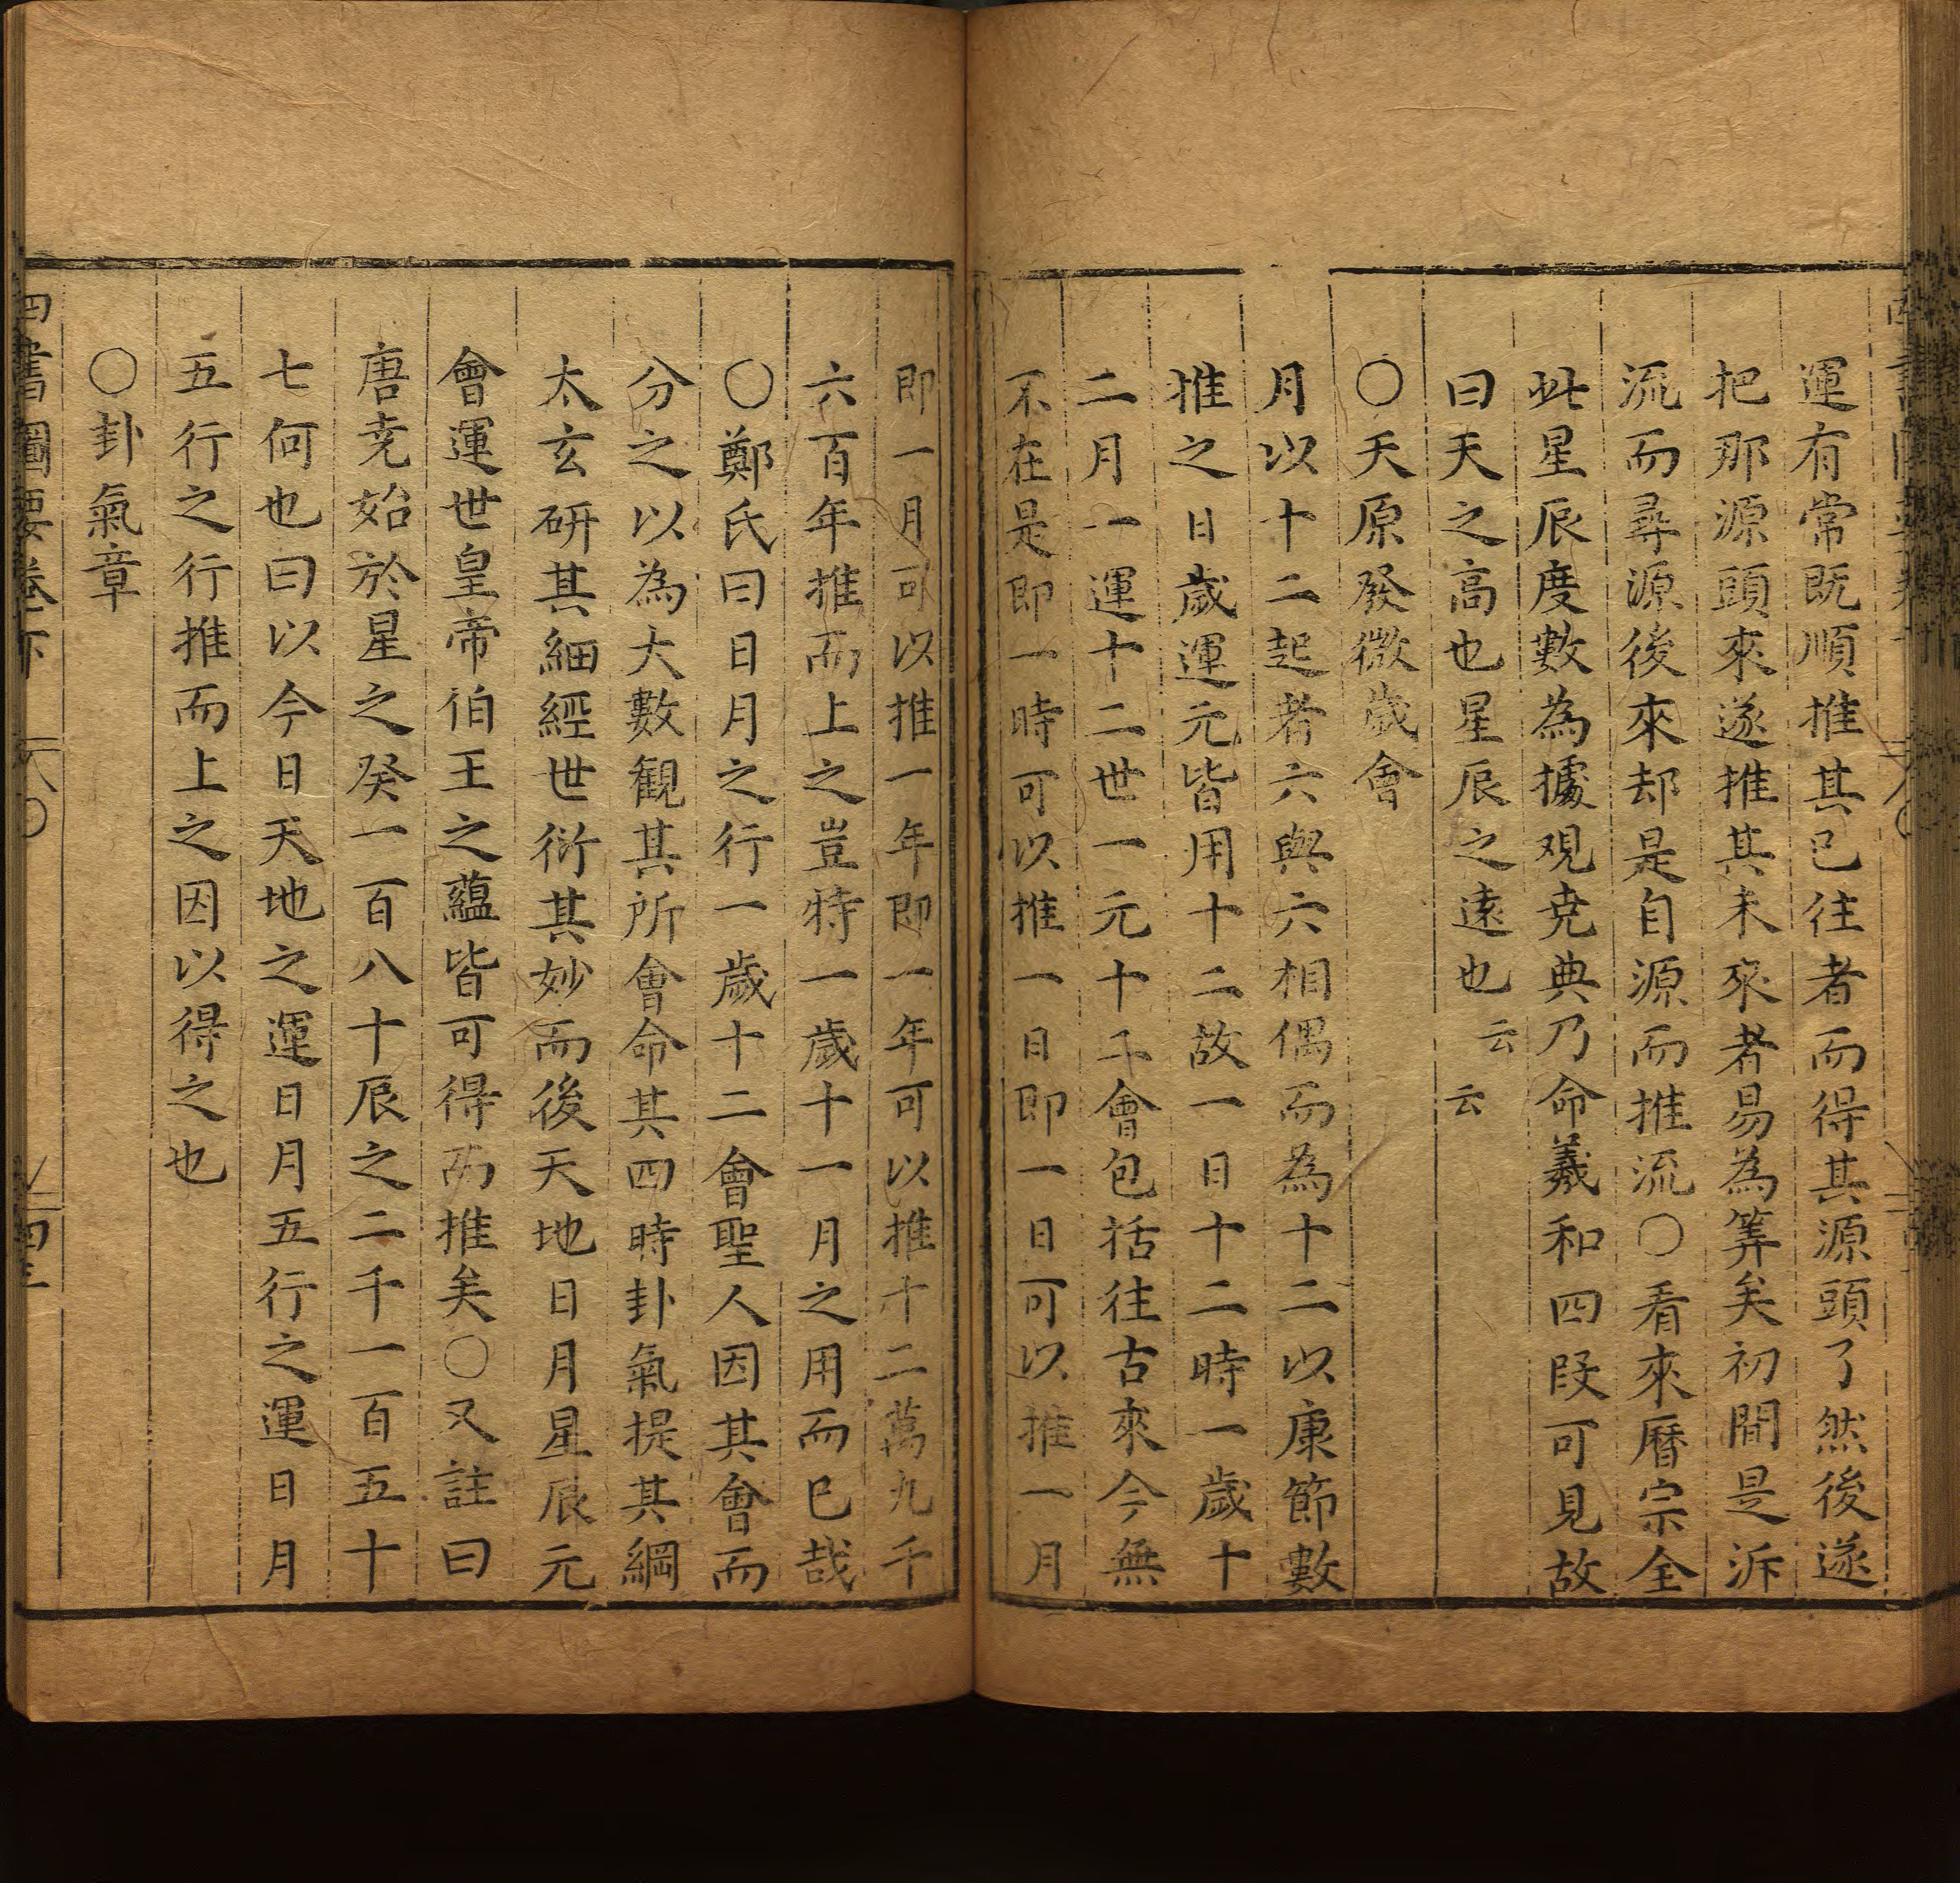 運有常既順推其已往者而得其源頭了然後遂
把那源頭來遂推其未來者易為筭矣初間是泝
流而尋源後來却是自源而推流○看來曆宗全
此星辰度數為據观尭典乃命羲和四叚可見故
曰天之高也星辰之遠也云云
○天原發微歲會
月以十二起者六與六相偶而為十二以康節數
推之日歲運元皆用十二故一日十二時一歲十
二月一運十二世一元十二會包括往古來今無
不在是即一時可以推一日即一日可以推一月
即一月可以推一年即一年可以推十二萬九千
六百年推而上之豈特一歲十一月之用而已哉
○鄭氏曰日月之行一歲十二會聖人因其會而
分之以為大數観其所會命其四時卦氣提其綱
太玄研其細經世衍其妙而後天地日月星辰元
會運世皇帝伯王之蘊皆可得而推矣○又註曰
唐尭始於星之癸一百八十辰之二千一百五十
七何也曰以今日天地之運日月五行之運日月
五行之行推而上之因以得之也
○卦氣章
四書圖要卷下